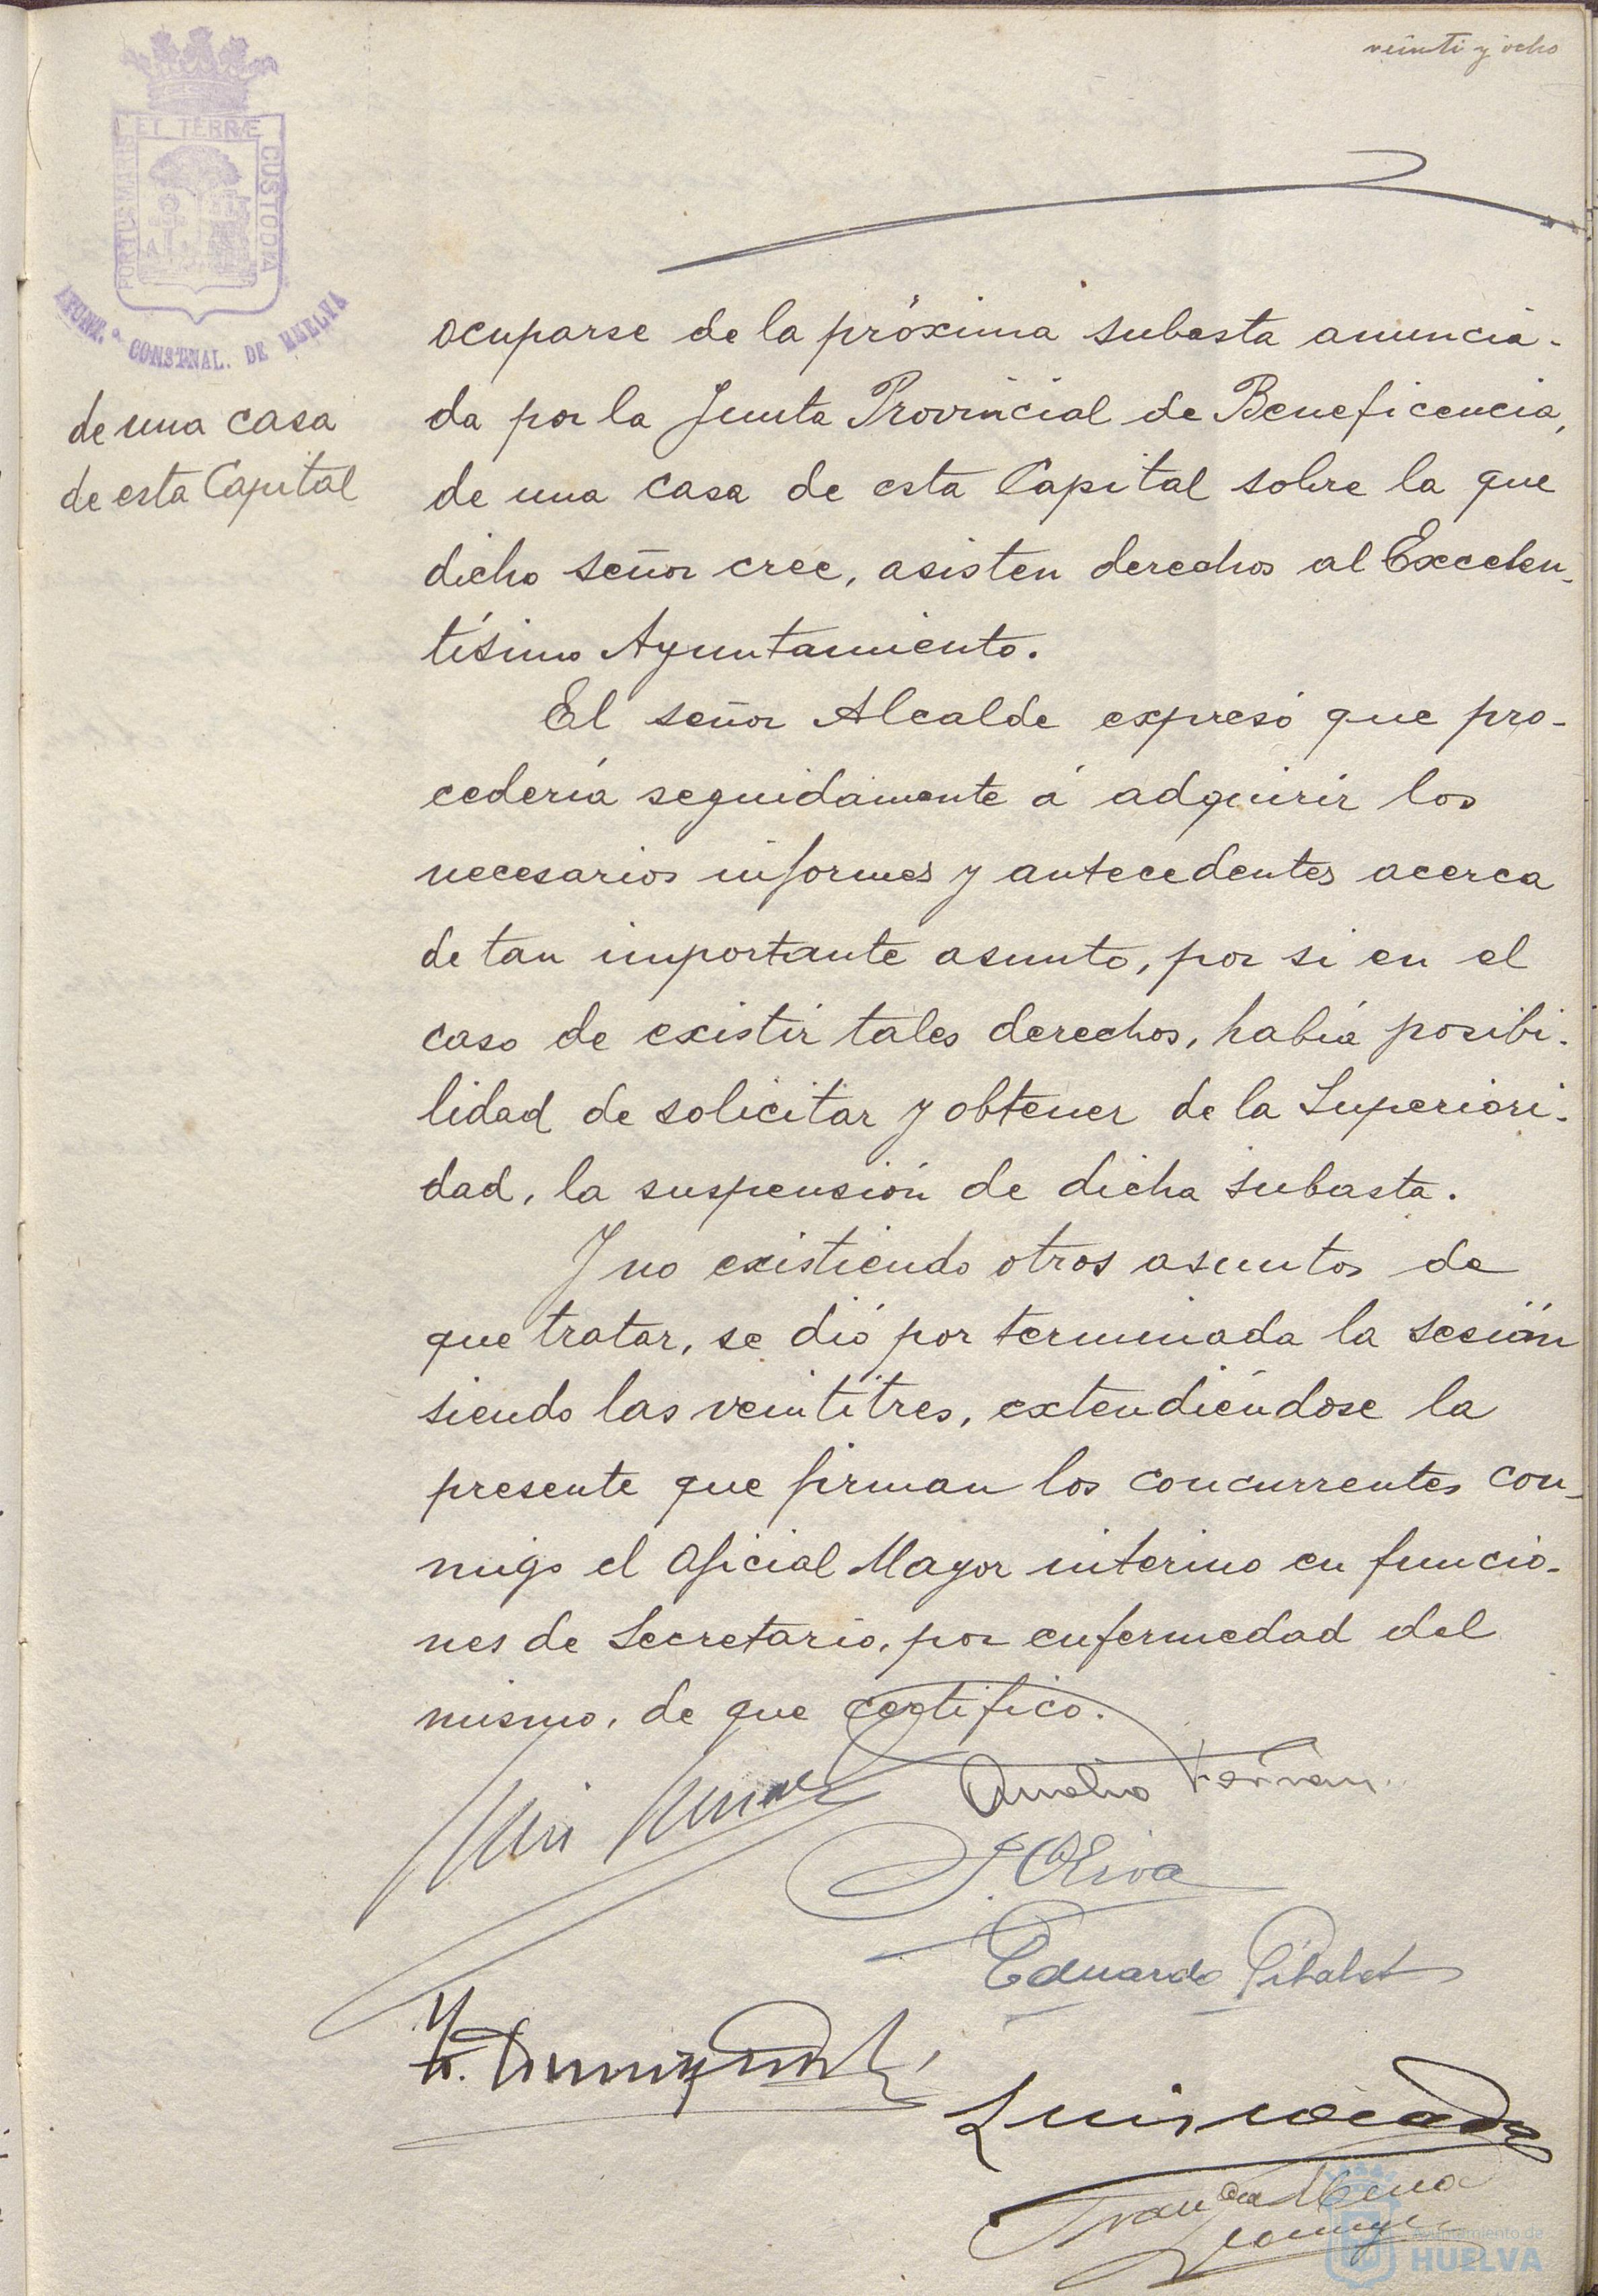 veinti y ocho
PORTUS MARIS ET TERRÆ CUSTODIA
AYUNT.º CONSTNAL. DE HUELVA
de una casa
de esta Capital
ocuparse de la próxima subasta anuncia-
da por la Junta Provincial de Beneficencia,
de una casa de esta Capital sobre la que
dicho señor cree, asisten derechos al Excelen-
tísimo Ayuntamiento.
El señor Alcalde expresó que pro-
cedería seguidamente á adquirir los
necesarios informes y antecedentes acerca
de tan importante asunto, por si en el
caso de existir tales derechos, había posibi-
lidad de solicitar y obtener de la Superiori-
dad, la suspensión de dicha subasta.
Y no existiendo otros asuntos de
que tratar, se dió por terminada la sesión
siendo las veintitres, extendiéndose la
presente que firman los concurrentes con-
migo el Oficial Mayor interino en funcio-
nes de Secretario, por enfermedad del
mismo, de que certifico.
J. Oliva
Eduardo
Luis
Ayuntamiento de
HUELVA